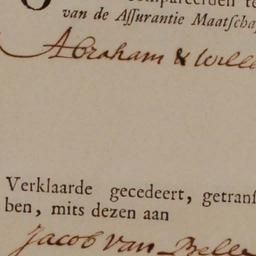 compareerden te
van de Aſſurantie Maatſcha
Abraham & Wille
Verklaarde gecedeert, getranſ
ben, mits dezen aan
Jacob van Belle